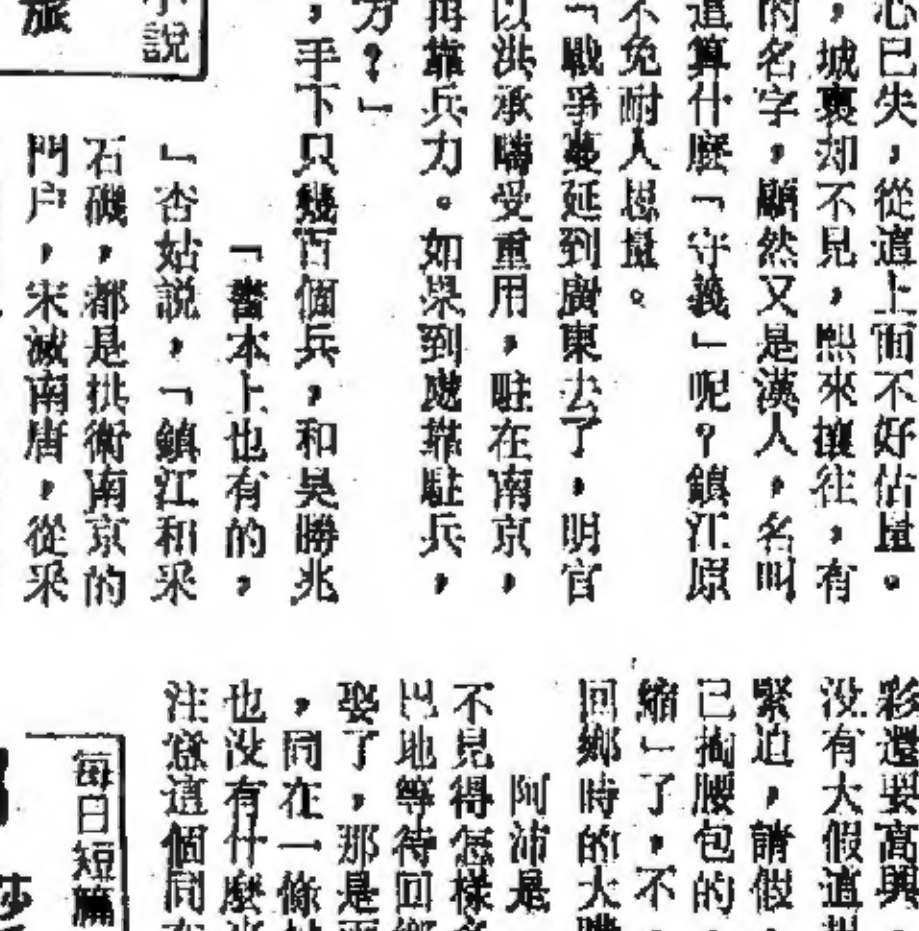 心已失，從這上面不好估量。
，城裏却不見，熙來攘往，有
的名字，顯然又是漢人，名叫
這算什麽「守義」呢？鎮江原
不免耐人思量。
「戰爭蔓延到廣東去了，明官
以洪承疇受重用，駐在南京，
再靠兵力。如果到處靠駐兵，
方？」
，手下只幾百個兵，和吳勝兆
「書本上也有的，
」杏姑説，「鎮江和采
石磯，都是拱衛南京的
門户，宋滅南唐，從采
小説
旅
彩還要高興
没有大假道
緊迫，請假
己掏腰包的
縮」了，不
回鄉時的大
阿沛是
不見得怎樣
巴地等待回鄉
娶了，那是
，同在一條
也没有什麽
注意這個同
每日短篇
莎